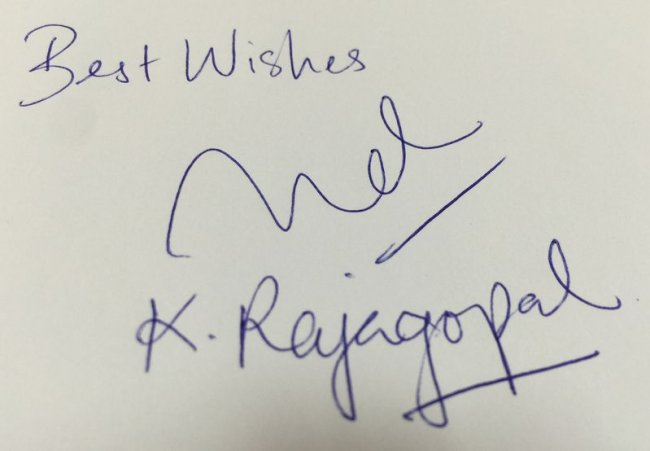 Best Wishes
K. Rajagopal